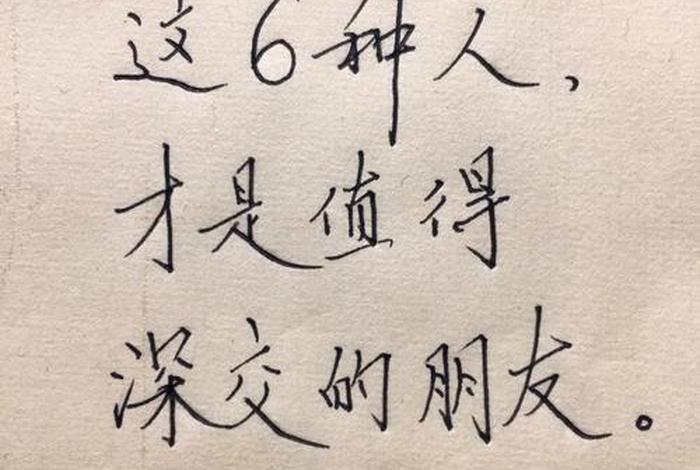 这6种人，
才是值得
深交的朋友。